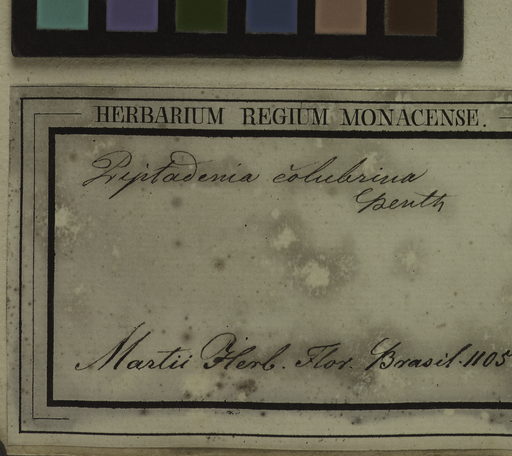 HERBARIUM REGIUM MONACENSE.
Piptadenia colubrina
Benth
Martii Herb. Flor. Brasil. 1105